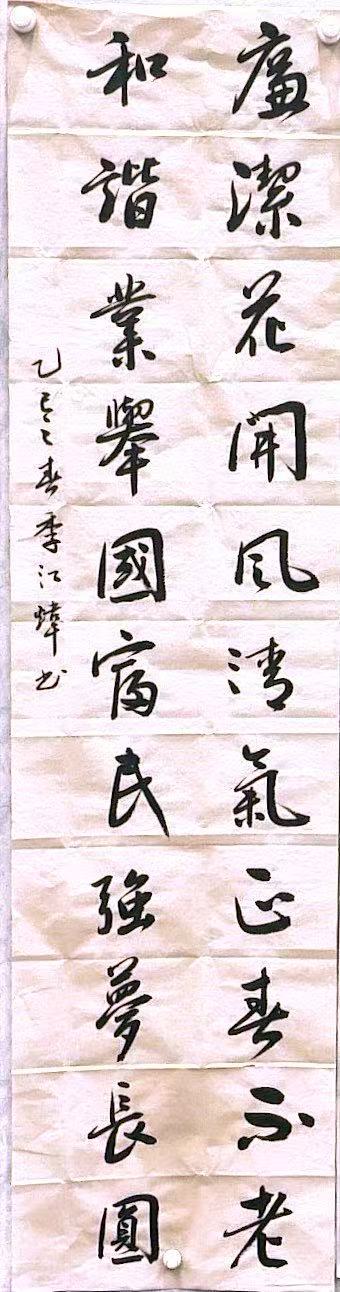 廉潔花開風清氣正春不老
和諧業舉國富民強夢長圓
乙巳之春季江煒书